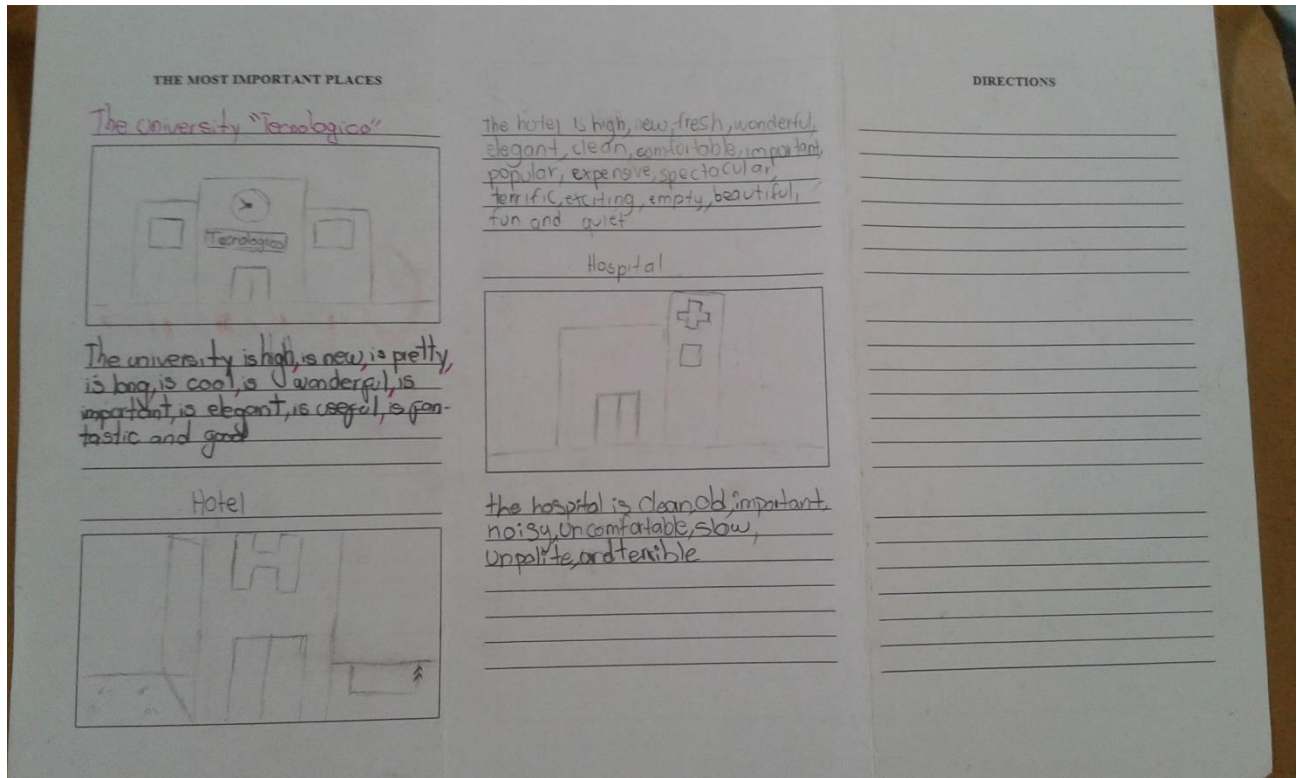 THE MOST IMPORTANT PLACES
The university "Tecnologico"
Tecnologico
The university is high, is new, is pretty,
is long, is cool, is wonderful, is
important, is elegant, is useful, is fan-
tastic and good
Hotel
H
The hotel is high, new, fresh, wonderful,
elegant, clean, comfortable, important,
popular, expensive, spectacular,
terrific, exciting, empty, beautiful,
fun and quiet
Hospital
the hospital is clean, old, important,
noisy, uncomfortable, slow,
unpolite, and terrible
DIRECTIONS